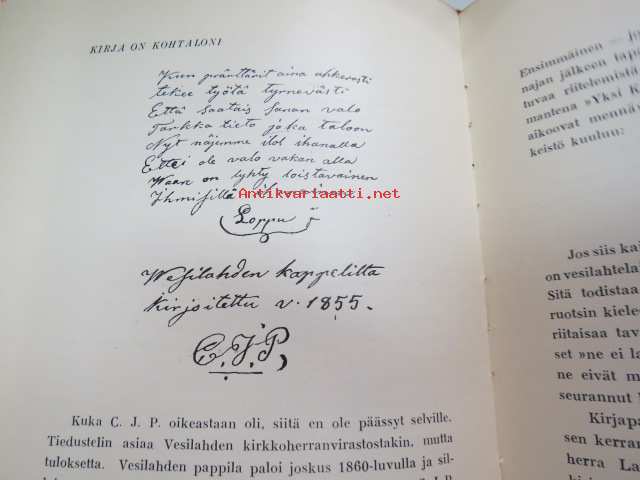 KIRJA ON KOHTALONI
Kun pränttärit aina ahkerasti
tekee työtä tyrnevästi
Että saatais Sanan valo
Tarkka tieto joka taloon
Nyt näjemme ilol ihanalla
Ettei ole valo vakan alla
Waan on lyhty loistavainen
Ihmisillä
Antikvariaatti.net
Loppu
Wesilahden kappelilta
kirjoitettu v. 1855.
C. J. P.
Kuka C. J. P. oikeastaan oli, siitä en ole päässyt selville.
Tiedustelin asiaa Vesilahden kirkkoherranvirastostakin, mutta
tuloksetta. Vesilahden pappila paloi joskus 1860-luvulla ja sil-
Ensimmäinen — jo
najan jälkeen tapu
tuvaa riitelemistä
mantena »Yksi K
aikoovat mennä
keistö kuuluu:
Jos siis kai
on vesilahtela
Sitä todistaa
ruotsin kiele
riitaisaa tav
set »ne ei la
ne eivät m
seurannut
Kirjapa
sen kerran
herra La